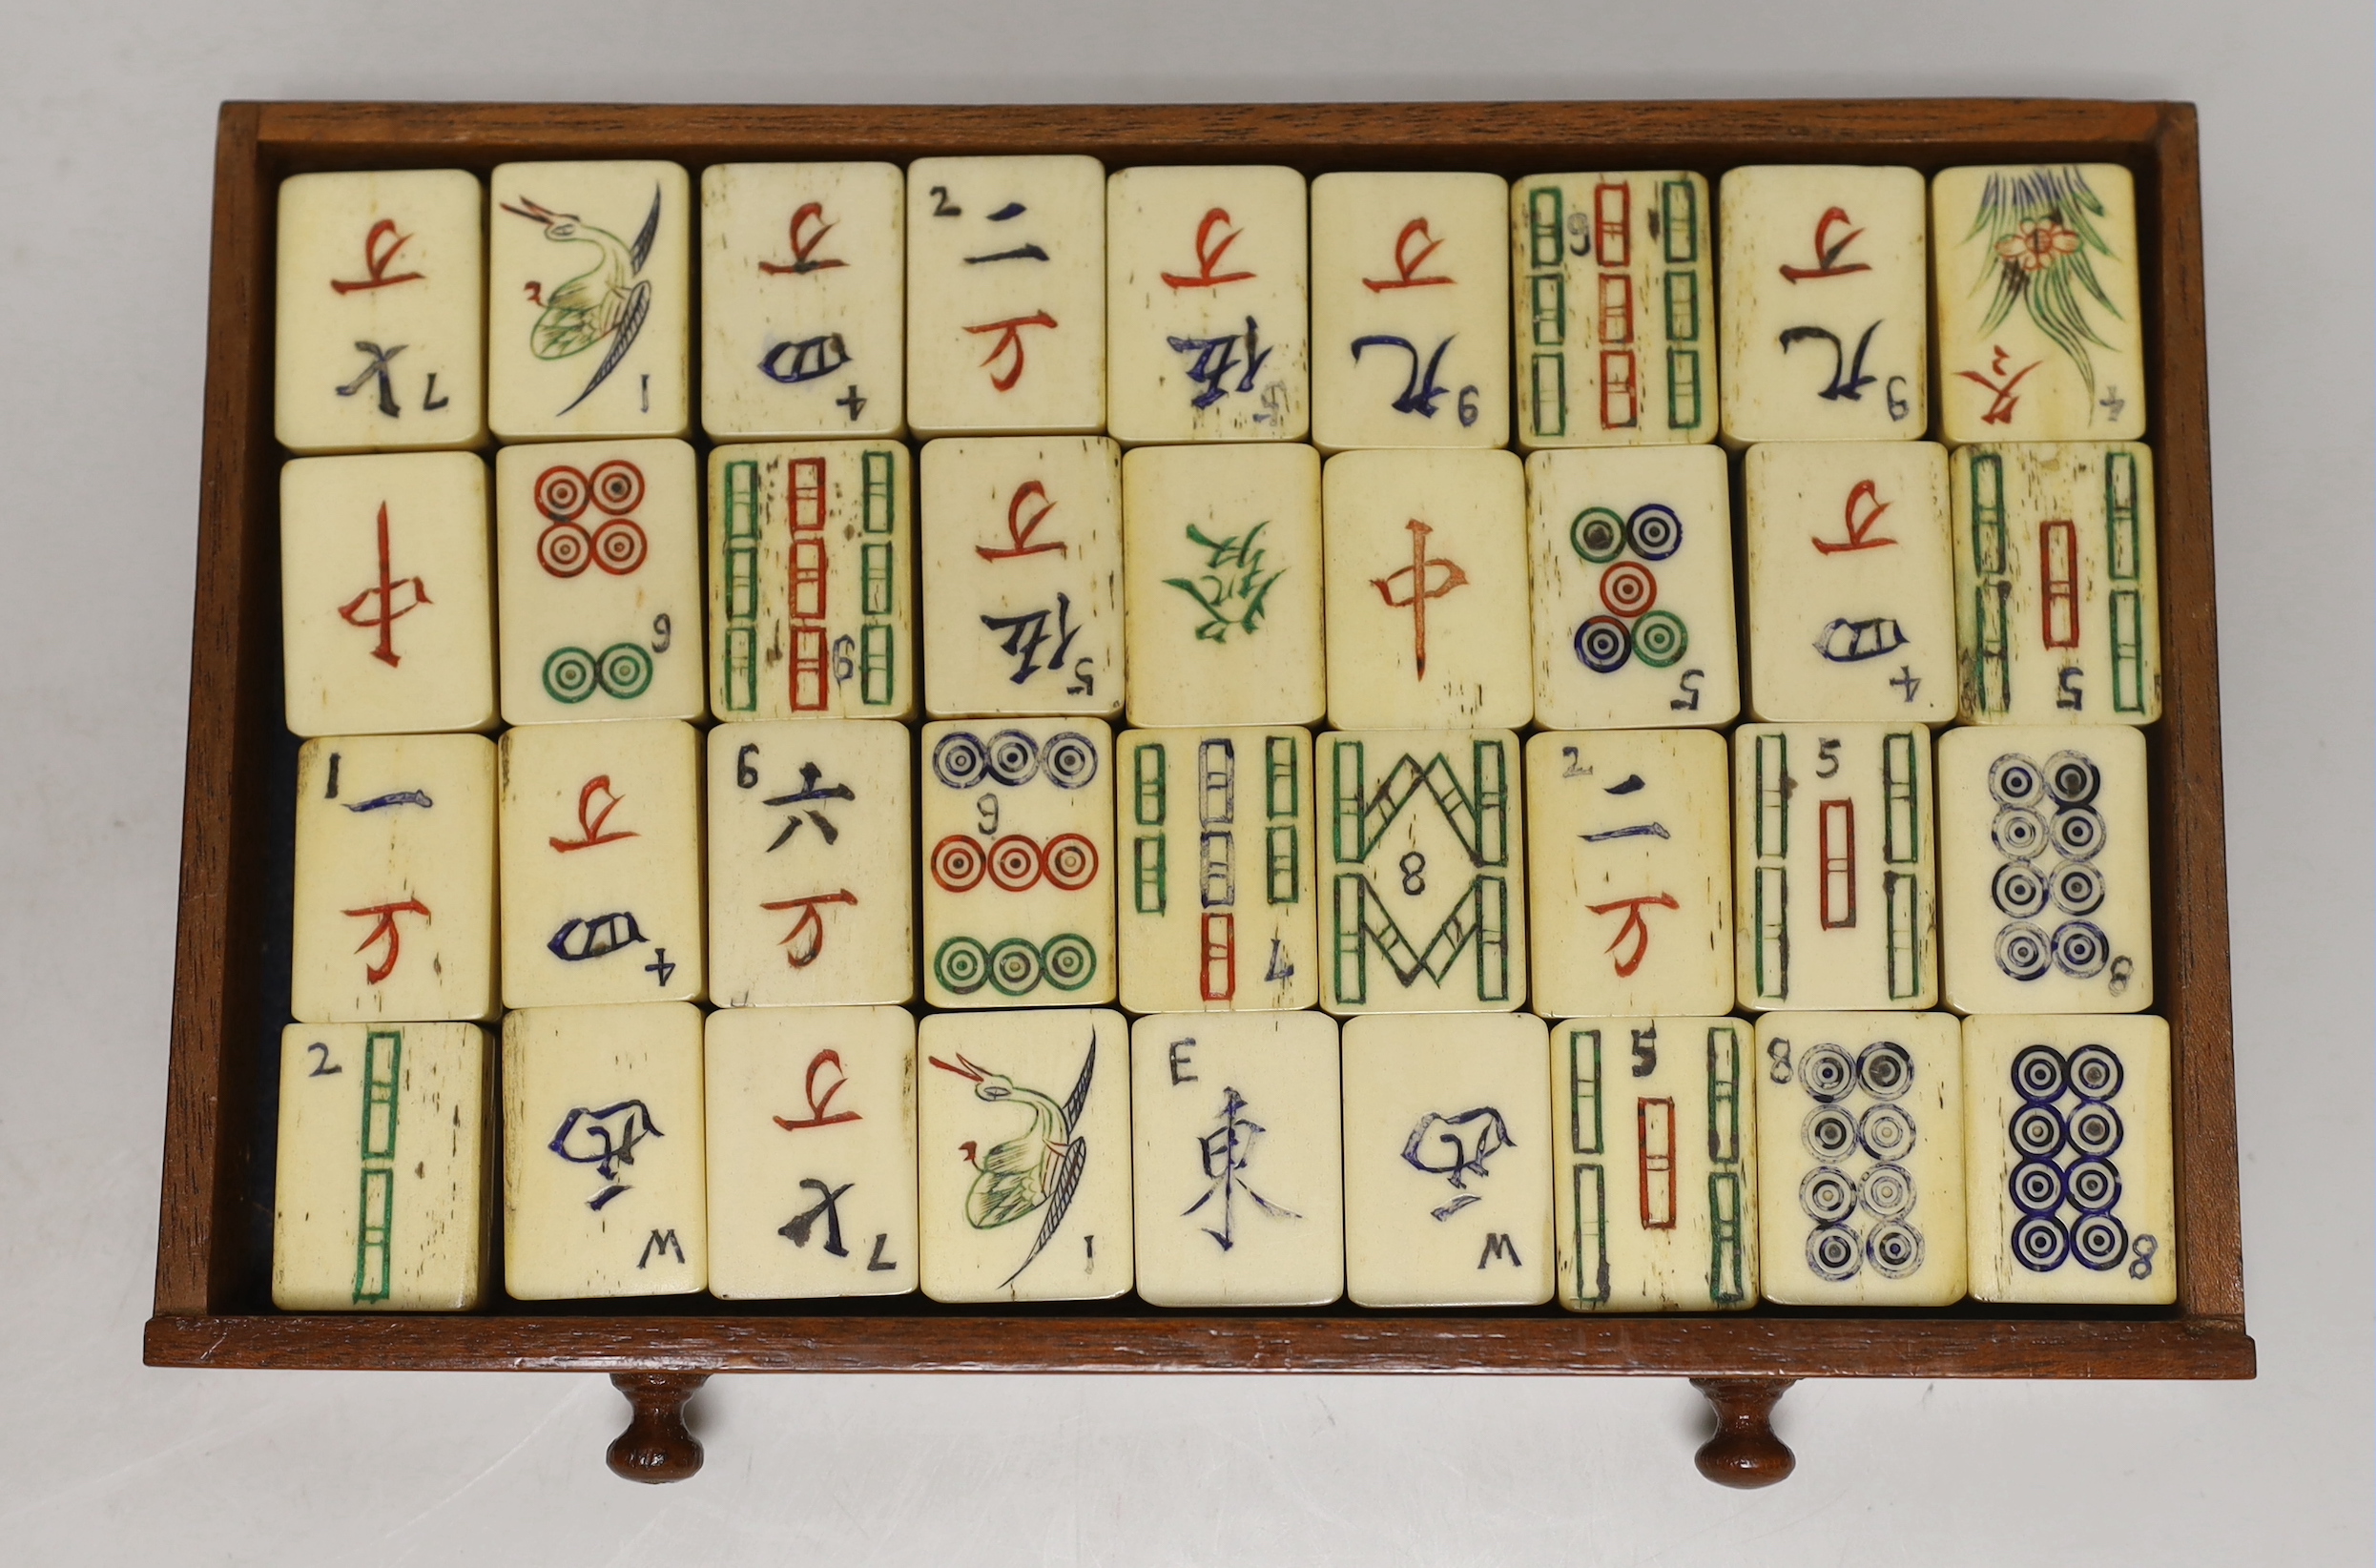 7 七
万
1
4 四
万
2 二
万
5 伍
万
9 九
万
9
9 九
万
4 冬
中
6
9
5 伍
万
發
中
5
4 四
万
5
1 一
万
4 四
万
6 六
万
9
7
8
2 二
万
5
8
2
W
西
7 七
万
1
E
東
W
西
5
8
8